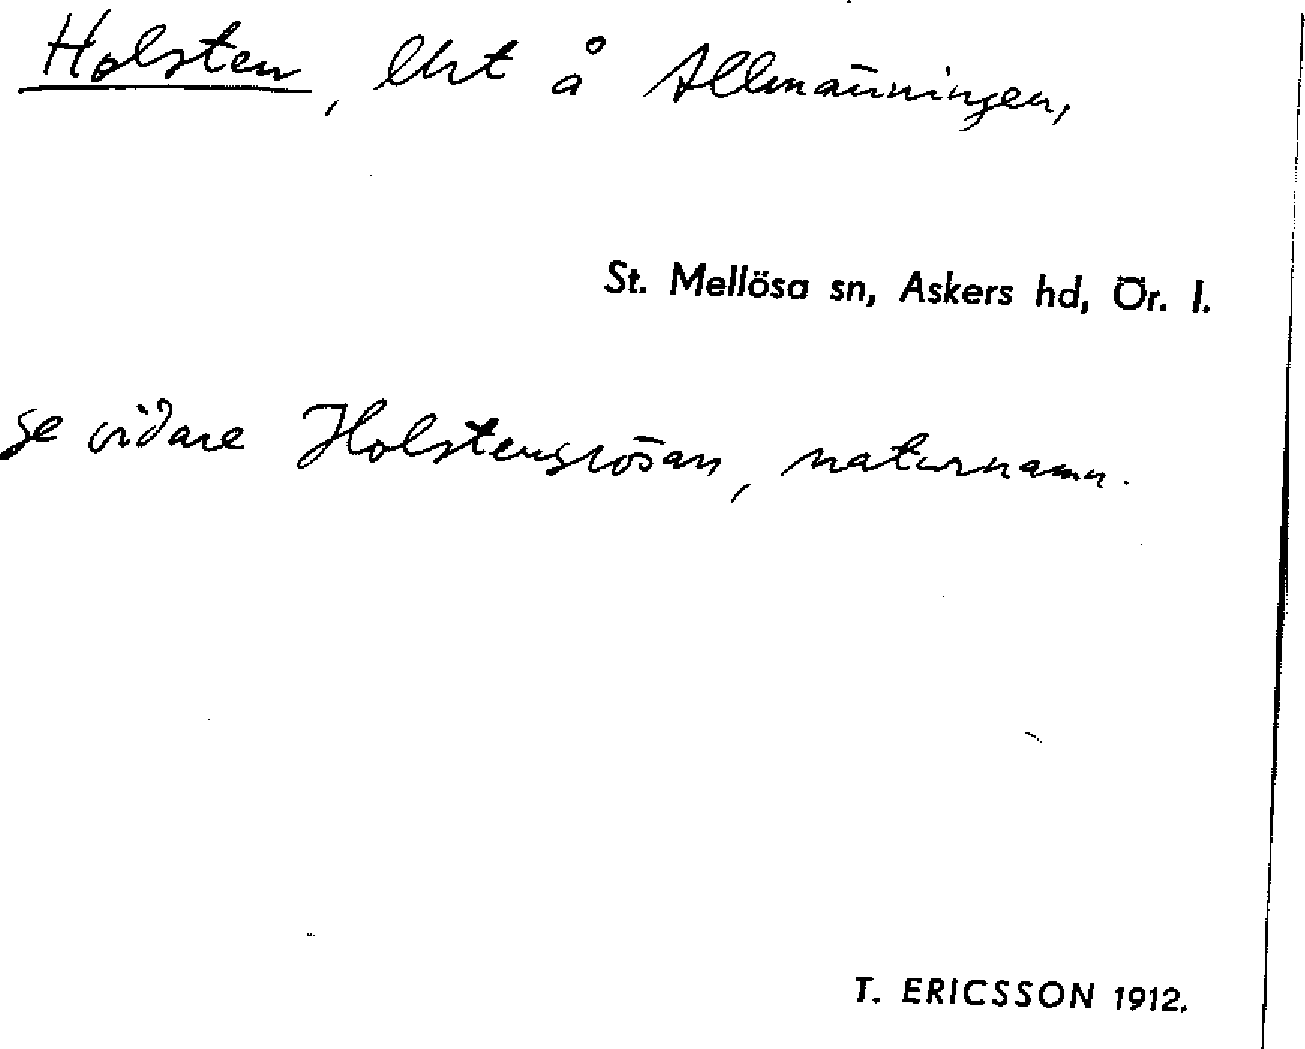 Holsten, lht å Allmänningen,
St. Mellösa sn, Askers hd, Ör. l.
se vidare Holstensrösan, naturnamn.
T. ERICSSON 1912.